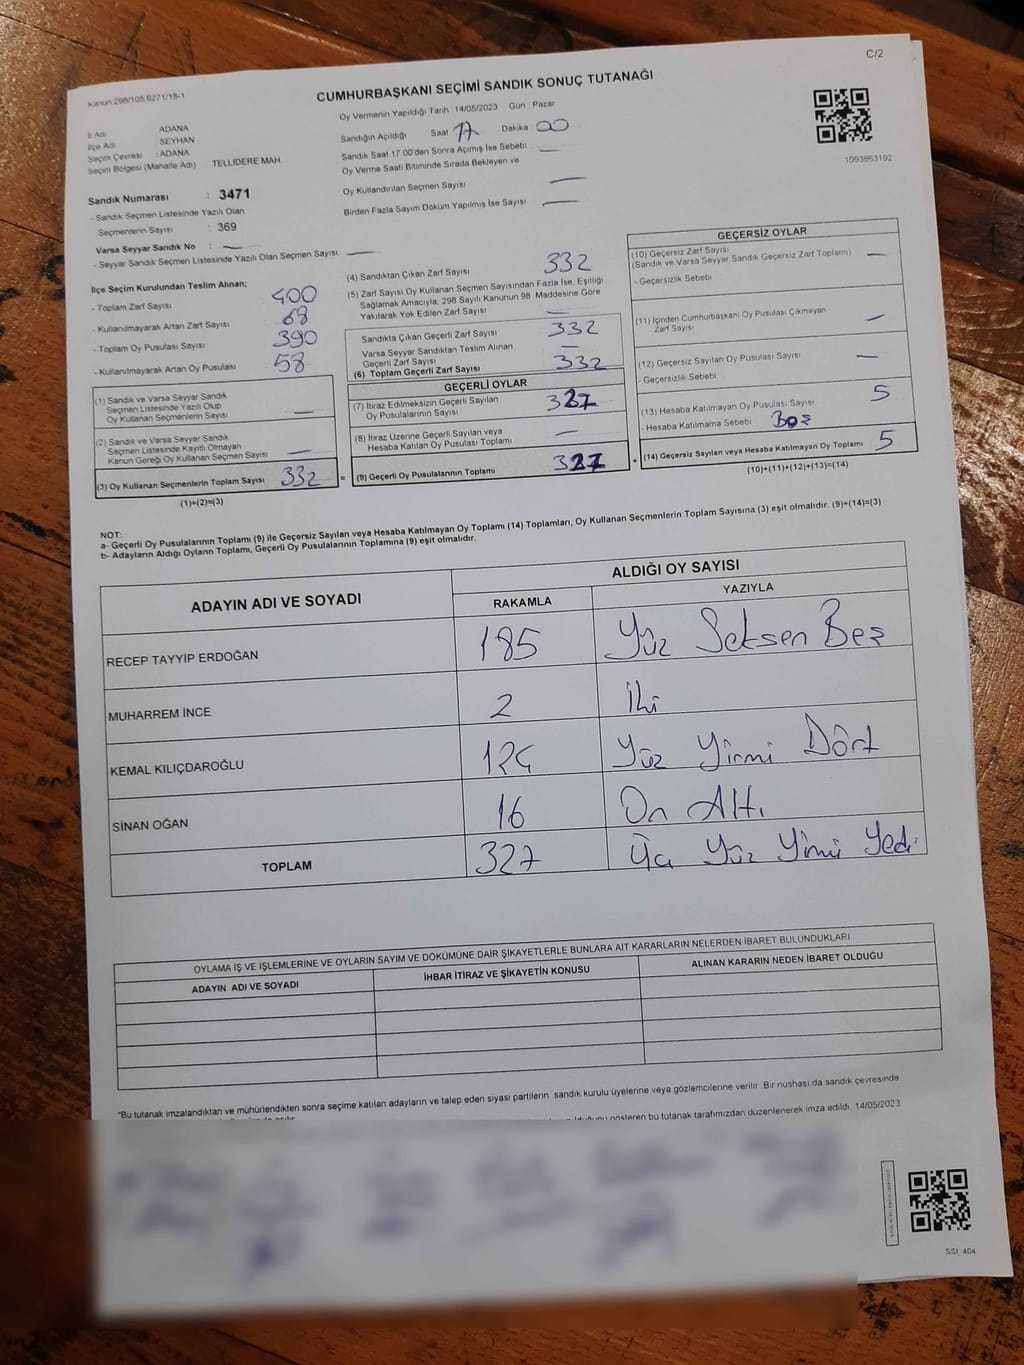 C/2
Kanun:298/105,6271/18-1
CUMHURBAŞKANI SEÇİMİ SANDIK SONUÇ TUTANAĞI
Oy Vermenin Yapıldığı Tarih : 14/05/2023 Gün : Pazar
İl Adı : ADANA
İlçe Adı : SEYHAN
Seçim Çevresi : ADANA
Seçim Bölgesi (Mahalle Adı) TELLİDERE MAH
Sandığın Açıldığı Saat 17 Dakika 00
Sandık Saat 17:00'den Sonra Açılmış İse Sebebi —
Oy Verme Saati Bitiminde Sırada Bekleyen ve
Oy Kullandırılan Seçmen Sayısı —
Birden Fazla Sayım Döküm Yapılmış İse Sayısı —
1093863192
Sandık Numarası : 3471
- Sandık Seçmen Listesinde Yazılı Olan
Seçmenlerin Sayısı : 369
Varsa Seyyar Sandık No : —
- Seyyar Sandık Seçmen Listesinde Yazılı Olan Seçmen Sayısı: —
İlçe Seçim Kurulundan Teslim Alınan;
- Toplam Zarf Sayısı 400
- Kullanılmayarak Artan Zarf Sayısı 68
- Toplam Oy Pusulası Sayısı 390
- Kullanılmayarak Artan Oy Pusulası 58
(1) Sandık ve Varsa Seyyar Sandık
Seçmen Listesinde Yazılı Olup
Oy Kullanan Seçmenlerin Sayısı —
(2) Sandık ve Varsa Seyyar Sandık
Seçmen Listesinde Kayıtlı Olmayan
Kanun Gereği Oy Kullanan Seçmen Sayısı —
(3) Oy Kullanan Seçmenlerin Toplam Sayısı 332
(1)+(2)=(3)
(4) Sandıktan Çıkan Zarf Sayısı 332
(5) Zarf Sayısı Oy Kullanan Seçmen Sayısından Fazla İse, Eşitliği
Sağlamak Amacıyla, 298 Sayılı Kanunun 98. Maddesine Göre
Yakılarak Yok Edilen Zarf Sayısı —
Sandıkta Çıkan Geçerli Zarf Sayısı 332
Varsa Seyyar Sandıktan Teslim Alınan
Geçerli Zarf Sayısı —
(6) Toplam Geçerli Zarf Sayısı 332
GEÇERLİ OYLAR
(7) İtiraz Edilmeksizin Geçerli Sayılan
Oy Pusulalarının Sayısı 327
(8) İtiraz Üzerine Geçerli Sayılan veya
Hesaba Katılan Oy Pusulası Toplamı —
= (9) Geçerli Oy Pusulalarının Toplamı 327 +
GEÇERSİZ OYLAR
(10) Geçersiz Zarf Sayısı
(Sandık ve Varsa Seyyar Sandık Geçersiz Zarf Toplamı) —
- Geçersizlik Sebebi
(11) İçinden Cumhurbaşkanı Oy Pusulası Çıkmayan
Zarf Sayısı —
(12) Geçersiz Sayılan Oy Pusulası Sayısı —
- Geçersizlik Sebebi
(13) Hesaba Katılmayan Oy Pusulası Sayısı 5
- Hesaba Katılmama Sebebi Boş
(14) Geçersiz Sayılan veya Hesaba Katılmayan Oy Toplamı 5
(10)+(11)+(12)+(13)=(14)
NOT:
a- Geçerli Oy Pusulalarının Toplamı (9) ile Geçersiz Sayılan veya Hesaba Katılmayan Oy Toplamı (14) Toplamları, Oy Kullanan Seçmenlerin Toplam Sayısına (3) eşit olmalıdır. (9)+(14)=(3)
b- Adayların Aldığı Oyların Toplamı, Geçerli Oy Pusulalarının Toplamına (9) eşit olmalıdır.
ADAYIN ADI VE SOYADI ALDIĞI OY SAYISI
RAKAMLA YAZIYLA
RECEP TAYYİP ERDOĞAN 185 Yüz Seksen Beş
MUHARREM İNCE 2 İki
KEMAL KILIÇDAROĞLU 124 Yüz Yirmi Dört
SİNAN OĞAN 16 On Altı
TOPLAM 327 Üç Yüz Yirmi Yedi
OYLAMA İŞ VE İŞLEMLERİNE VE OYLARIN SAYIM VE DÖKÜMÜNE DAİR ŞİKAYETLERLE BUNLARA AİT KARARLARIN NELERDEN İBARET BULUNDUKLARI
ADAYIN ADI VE SOYADI İHBAR İTİRAZ VE ŞİKAYETİN KONUSU ALINAN KARARIN NEDEN İBARET OLDUĞU
*Bu tutanak imzalandıktan ve mühürlendikten sonra seçime katılan adayların ve talep eden siyasi partilerin sandık kurulu üyelerine veya gözlemcilerine verilir. Bir nüshası da sandık çevresinde
gösteren bu tutanak tarafımızdan düzenlenerek imza edildi. 14/05/2023
SSI_404